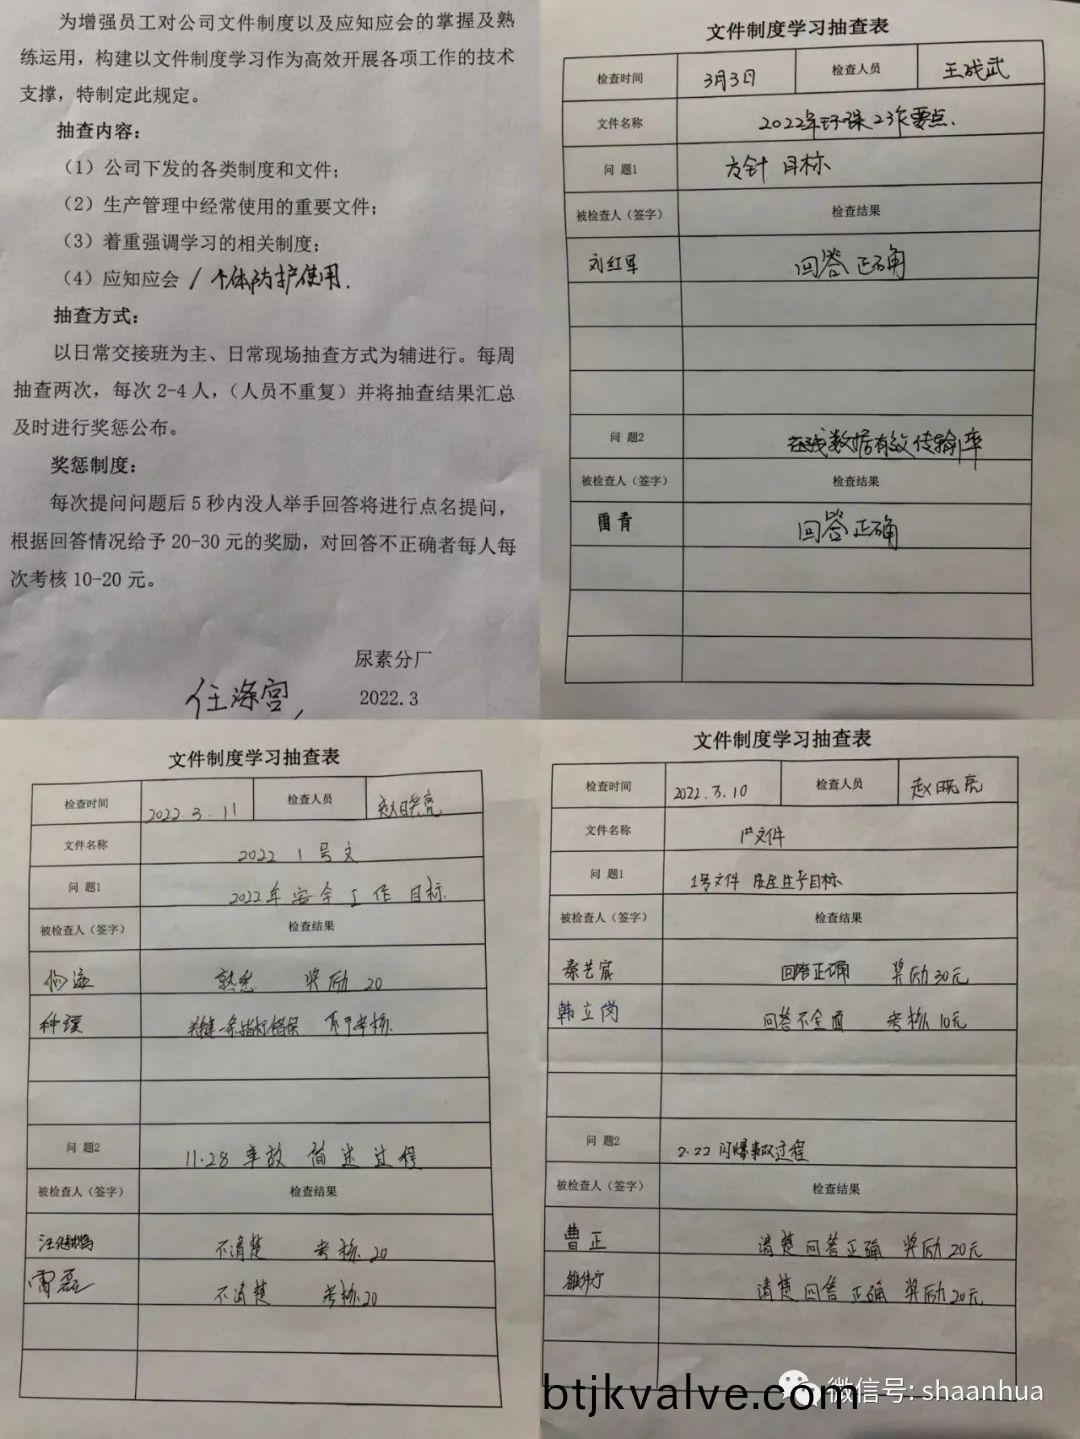 为增强员工对公司文件制度以及应知应会的掌握及熟
练运用，构建以文件制度学习作为高效开展各项工作的技术
支撑，特制定此规定。
抽查内容：
（1）公司下发的各类制度和文件；
（2）生产管理中经常使用的重要文件；
（3）着重强调学习的相关制度；
（4）应知应会 / 个体防护使用.
抽查方式：
以日常交接班为主、日常现场抽查方式为辅进行。每周
抽查两次，每次 2-4 人，（人员不重复）并将抽查结果汇总
及时进行奖惩公布。
奖惩制度：
每次提问问题后 5 秒内没人举手回答将进行点名提问，
根据回答情况给予 20-30 元的奖励，对回答不正确者每人每
次考核 10-20 元。
尿素分厂
2022.3
文件制度学习抽查表
检查时间 3月3日 检查人员 王战武
文件名称 2022年环保工作要点.
问 题1 方针 目标
被检查人（签字） 检查结果
刘红军 回答正确
问 题2 在线数据有效传输率
被检查人（签字） 检查结果
雷青 回答正确
文件制度学习抽查表
检查时间 2022.3.11 检查人员 赵晓亮
文件名称 2022 1号文
问 题1 2022年安全工作目标.
被检查人（签字） 检查结果
熟悉 奖励 20
考核.
问 题2 11.28 事故 简述过程
被检查人（签字） 检查结果
不清楚 考核.20
雷磊 不清楚 考核.20
文件制度学习抽查表
检查时间 2022.3.10 检查人员 赵晓亮
文件名称 1#文件
问 题1 1号文件 安全生产目标
被检查人（签字） 检查结果
秦艺宸 回答正确 奖励30元
韩立岗 回答不全面 考核10元
问 题2 2.22 闪爆事故过程
被检查人（签字） 检查结果
曹正 清楚回答正确 奖励20元
清楚回答正确 奖励20元
微信号: shaanhua
btjkvalve.com